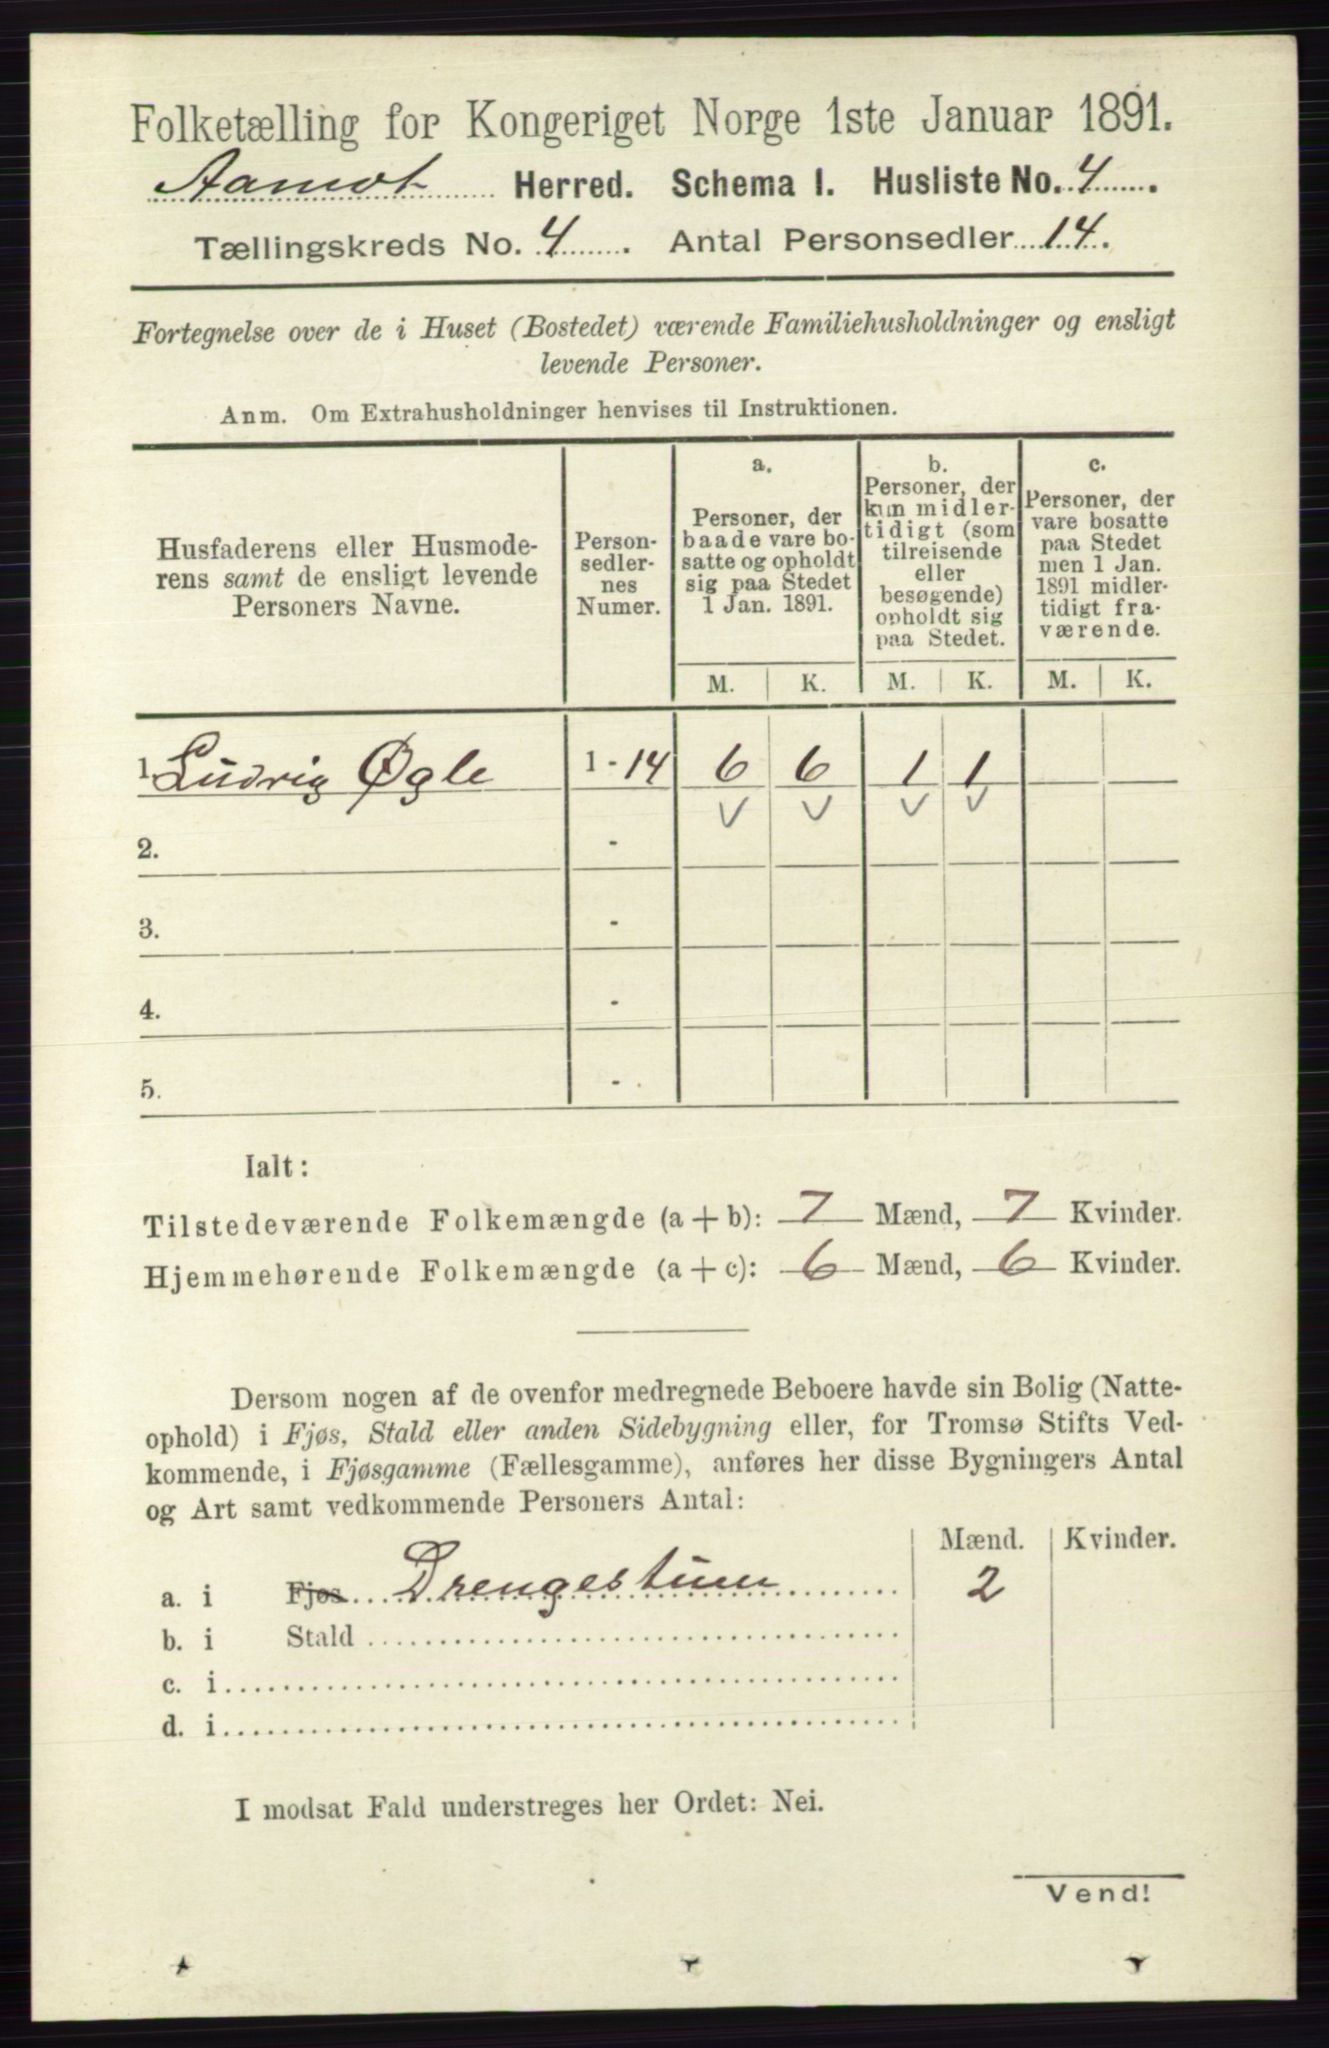 Folketælling for Kongeriget Norge 1ste Januar 1891.
Aamot Herred. Schema 1. Husliste No. 4.
Tællingskreds No. 4. Antal Personsedler 14.
Fortegnelse over de i Huset (Bostedet) værende Familiehusholdninger og ensligt
levende Personer.
Anm. Om Extrahusholdninger henvises til Instruktionen.
Husfaderens eller Husmode-
rens samt de ensligt levende
Personers Navne.
Person-
sedler-
nes
Numer.
a.
Personer, der
baade vare bo-
satte og opholdt
sig paa Stedet
1 Jan. 1891.
b.
Personer, der
kun midler-
tidigt (som
tilreisende
eller
besøgende)
opholdt sig
paa Stedet.
c.
Personer, der
vare bosatte
paa Stedet
men 1 Jan.
1891 midler-
tidigt fra-
værende.
M. K. M. K. M. K.
1. Ludvig Øgle 1 - 14 6 6 1 1
2. -
3. -
4. -
5. -
Ialt:
Tilstedeværende Folkemængde (a + b): 7 Mænd, 7 Kvinder.
Hjemmehørende Folkemængde (a + c): 6 Mænd, 6 Kvinder.
Dersom nogen af de ovenfor medregnede Beboere havde sin Bolig (Natte-
ophold) i Fjøs, Stald eller anden Sidebygning eller, for Tromsø Stifts Ved-
kommende, i Fjøsgamme (Fællesgamme), anføres her disse Bygningers Antal
og Art samt vedkommende Personers Antal:
Mænd. Kvinder.
a. i Fjøs Drengestuen 2
b. i Stald
c. i
d. i
I modsat Fald understreges her Ordet: Nei.
Vend!